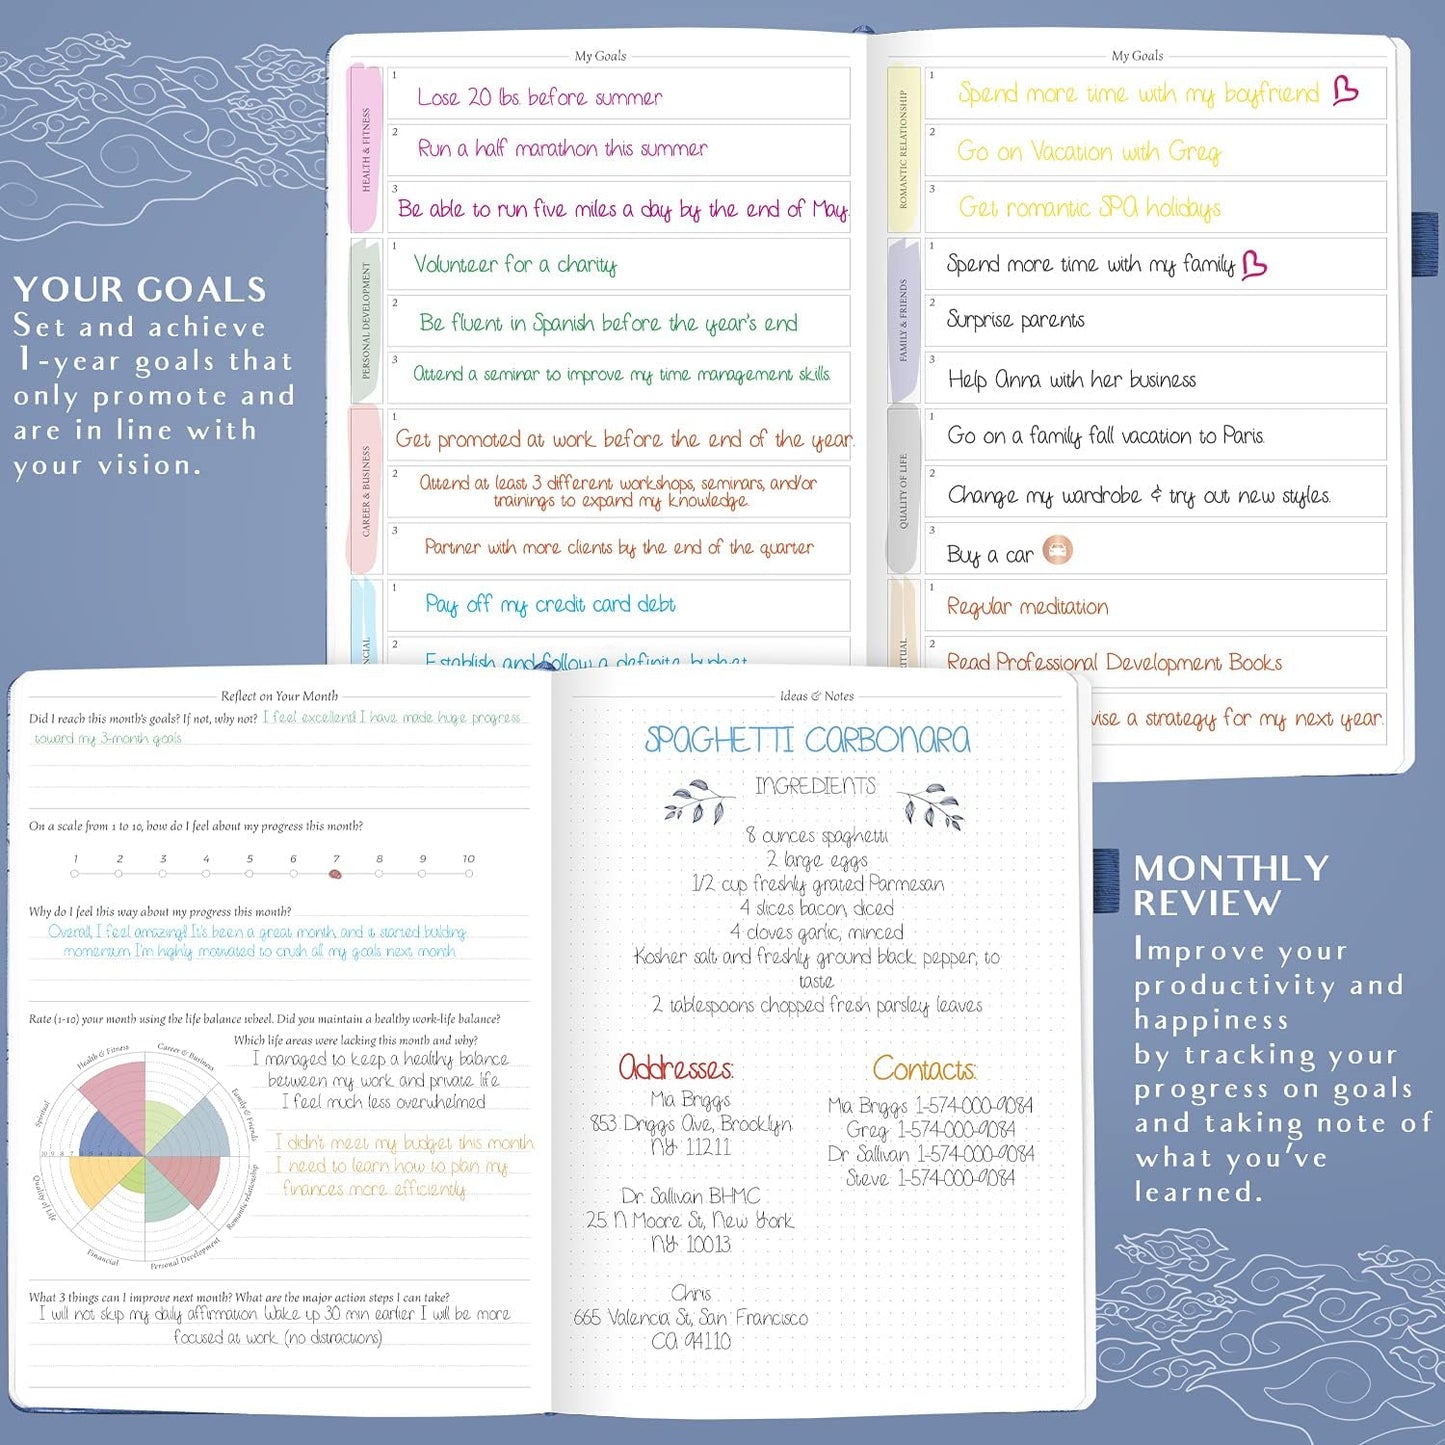 YOUR GOALS
Set and achieve
1-year goals that
only promote and
are in line with
your vision.
My Goals
HEALTH & FITNESS
1
Lose 20 lbs. before summer
2
Run a half marathon this summer
3
Be able to run five miles a day by the end of May.
PERSONAL DEVELOPMENT
1
Volunteer for a charity
2
Be fluent in Spanish before the year's end
3
Attend a seminar to improve my time management skills.
CAREER & BUSINESS
1
Get promoted at work before the end of the year.
2
Attend at least 3 different workshops, seminars, and/or
trainings to expand my knowledge.
3
Partner with more clients by the end of the quarter
1
Pay off my credit card debt
2
Establish and follow a definite budget
My Goals
ROMANTIC RELATIONSHIP
1
Spend more time with my boyfriend
2
Go on Vacation with Greg
3
Get romantic SPA holidays
FAMILY & FRIENDS
1
Spend more time with my family
2
Surprise parents
3
Help Anna with her business
QUALITY OF LIFE
1
Go on a family fall vacation to Paris.
2
Change my wardrobe & try out new styles.
3
Buy a car
1
Regular meditation
2
Read Professional Development Books
a strategy for my next year.
Reflect on Your Month
Did I reach this month's goals? If not, why not? I feel excellent! I have made huge progress
toward my 3-month goals
On a scale from 1 to 10, how do I feel about my progress this month?
1 2 3 4 5 6 7 8 9 10
Why do I feel this way about my progress this month?
Overall, I feel amazing! It's been a great month, and it started building
momentum. I'm highly motivated to crush all my goals next month
Rate (1-10) your month using the life balance wheel. Did you maintain a healthy work-life balance?
Health & Fitness
Career & Business
Family & Friends
Romantic relationship
Personal Development
Financial
Quality of Life
Spiritual
Which life areas were lacking this month and why?
I managed to keep a healthy balance
between my work and private life
I feel much less overwhelmed
I didn't meet my budget this month
I need to learn how to plan my
finances more efficiently
What 3 things can I improve next month? What are the major action steps I can take?
I will not skip my daily affirmation. Wake up 30 min earlier I will be more
focused at work (no distractions)
Ideas & Notes
SPAGHETTI CARBONARA
INGREDIENTS
8 ounces spaghetti
2 large eggs
1/2 cup freshly grated Parmesan
4 slices bacon, diced
4 cloves garlic, minced
Kosher salt and freshly ground black pepper, to
taste
2 tablespoons chopped fresh parsley leaves
Addresses:
Mia Briggs
853 Driggs Ave, Brooklyn
NY 11211
Dr. Sallivan BHMC
25 N Moore St, New York
NY 10013
Chris
665 Valencia St, San Francisco
CA 94110
Contacts:
Mia Briggs 1-574-000-9084
Greg 1-574-000-9084
Dr Sallivan 1-574-000-9084
Steve 1-574-000-9084
MONTHLY
REVIEW
Improve your
productivity and
happiness
by tracking your
progress on goals
and taking note of
what you've
learned.